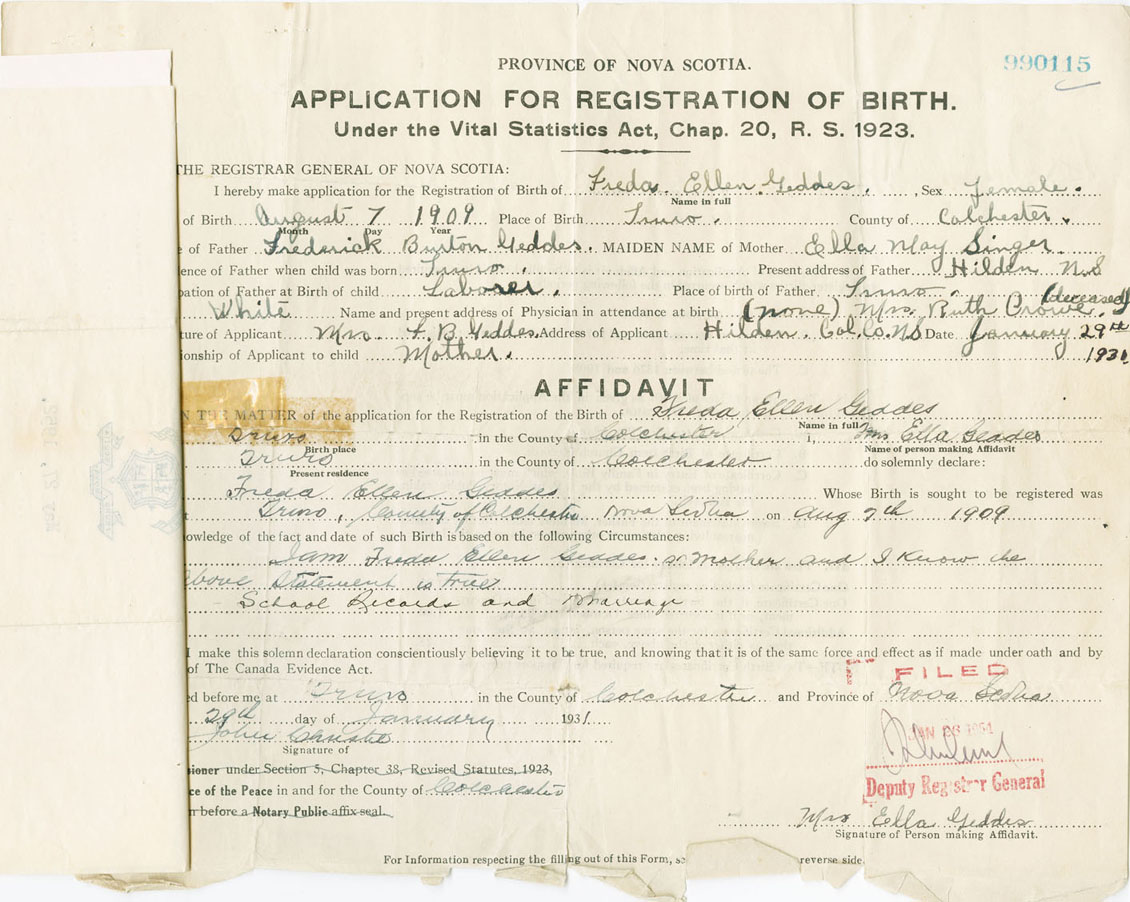 PROVINCE OF NOVA SCOTIA.
990115
APPLICATION FOR REGISTRATION OF BIRTH.
Under the Vital Statistics Act, Chap. 20, R. S. 1923.
THE REGISTRAR GENERAL OF NOVA SCOTIA:
I hereby make application for the Registration of Birth of Freda Ellen Geddes. , Sex Female.
Name in full
of Birth August 7 1909 Place of Birth Truro. County of Colchester.
Month Day Year
of Father Frederick Burton Geddes. MAIDEN NAME of Mother Ella May Singer
ence of Father when child was born Truro. Present address of Father Hilden N.S
pation of Father at Birth of child Laborer. Place of birth of Father Truro. (deceased)
White Name and present address of Physician in attendance at birth (none) Mrs. Ruth Crowe.
ture of Applicant Mrs. F. B. Geddes. Address of Applicant Hilden. Col. Co. NS Date January 29th
ionship of Applicant to child Mother. 1931
AFFIDAVIT
IN THE MATTER of the application for the Registration of the Birth of Freda Ellen Geddes
Name in full
Truro in the County of Colchester I, Mrs Ella Geddes
Birth place Name of person making Affidavit
Truro in the County of Colchester do solemnly declare:
Present residence
Freda Ellen Geddes Whose Birth is sought to be registered was
Truro, County of Colchester Nova Scotia on Aug 7th 1909
owledge of the fact and date of such Birth is based on the following Circumstances:
I am Freda Ellen Geddes. Mother and I Know the
above Statement is true
School Records and Marriage
I make this solemn declaration conscientiously believing it to be true, and knowing that it is of the same force and effect as if made under oath and by
of The Canada Evidence Act.
FILED
ed before me at Truro in the County of Colchester and Province of Nova Scotia
29th day of January 1931
John Christie
Signature of
JAN 26 1951
sioner under Section 5, Chapter 38, Revised Statutes, 1923,
ce of the Peace in and for the County of Colchester
Deputy Registrar General
r before a Notary Public affix seal.
Mrs Ella Geddes
Signature of Person making Affidavit.
For Information respecting the filling out of this Form, reverse side.